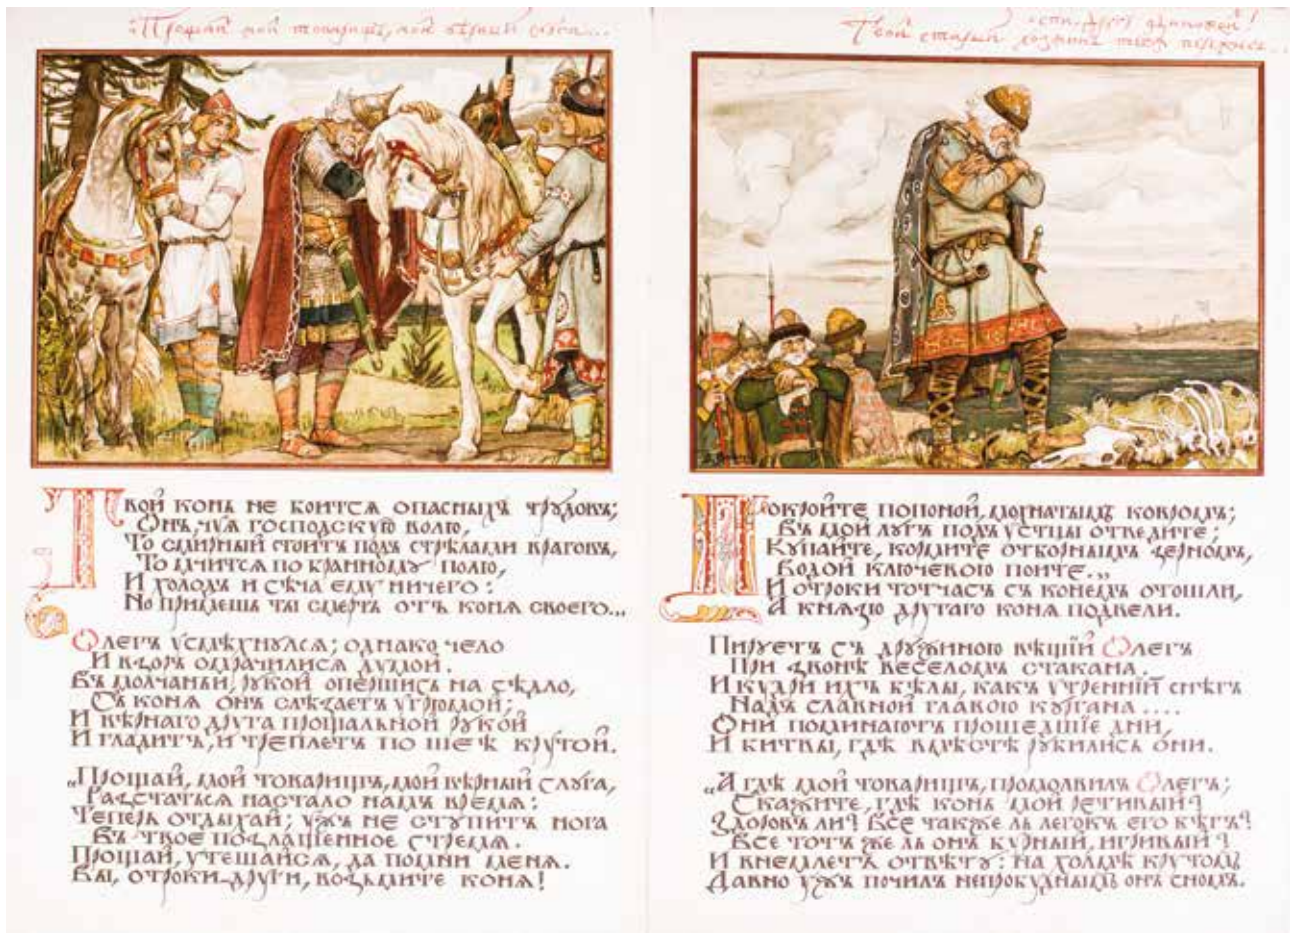 „Прощай мой товарищъ, мой вѣрный слуга...
Твой конь не боится опасныхъ трудовъ;
Онъ, чуя господскую волю,
То смирный стоитъ подъ стрѣлами враговъ,
То мчится по бранному полю,
И холодъ и сѣча ему ничего:
Но примешь ты смерть отъ коня своего...
Олегъ усмѣхнулся; однако чело
И взоръ омрачилися думой.
Въ молчаньи, рукой опершись на сѣдло,
Съ коня онъ слѣзаетъ угрюмой;
И вѣрнаго друга прощальной рукой
И гладитъ, и треплетъ по шеѣ крутой.
„Прощай, мой товарищъ, мой вѣрный слуга,
Разстаться настало намъ время:
Теперь отдыхай; ужъ не ступитъ нога
Въ твое позлащенное стремя.
Прощай, утешайся, да помни меня.
Вы, отроки-други, возьмите коня!
спи, другъ одинокой!
Твой старый хозяинъ тебя пережилъ...
Покройте попоной, мохнатымъ ковромъ;
Въ мой лугъ подъ устцы отведите;
Купайте, кормите отборнымъ зерномъ,
Водой ключевою поите...
И отроки тотчасъ съ конемъ отошли,
А князю другаго коня подвели.
Пируетъ съ дружиною вѣщій Олегъ
При звонѣ веселомъ стакана.
И кудри ихъ бѣлы, какъ утренній снѣгъ
Надъ славной главою кургана....
Они поминаютъ прошедшіе дни,
И битвы, гдѣ вмѣстѣ рубились они.
„А гдѣ мой товарищъ, промолвилъ Олегъ;
Скажите, гдѣ конь мой ретивый?
Здоровъ ли? Все такъже ль легокъ его бѣгъ?
Все тотъ же ль онъ бурный, игривый?
И внемлетъ отвѣту: на холмѣ крутомъ
Давно ужъ почилъ непробуднымъ онъ сномъ.